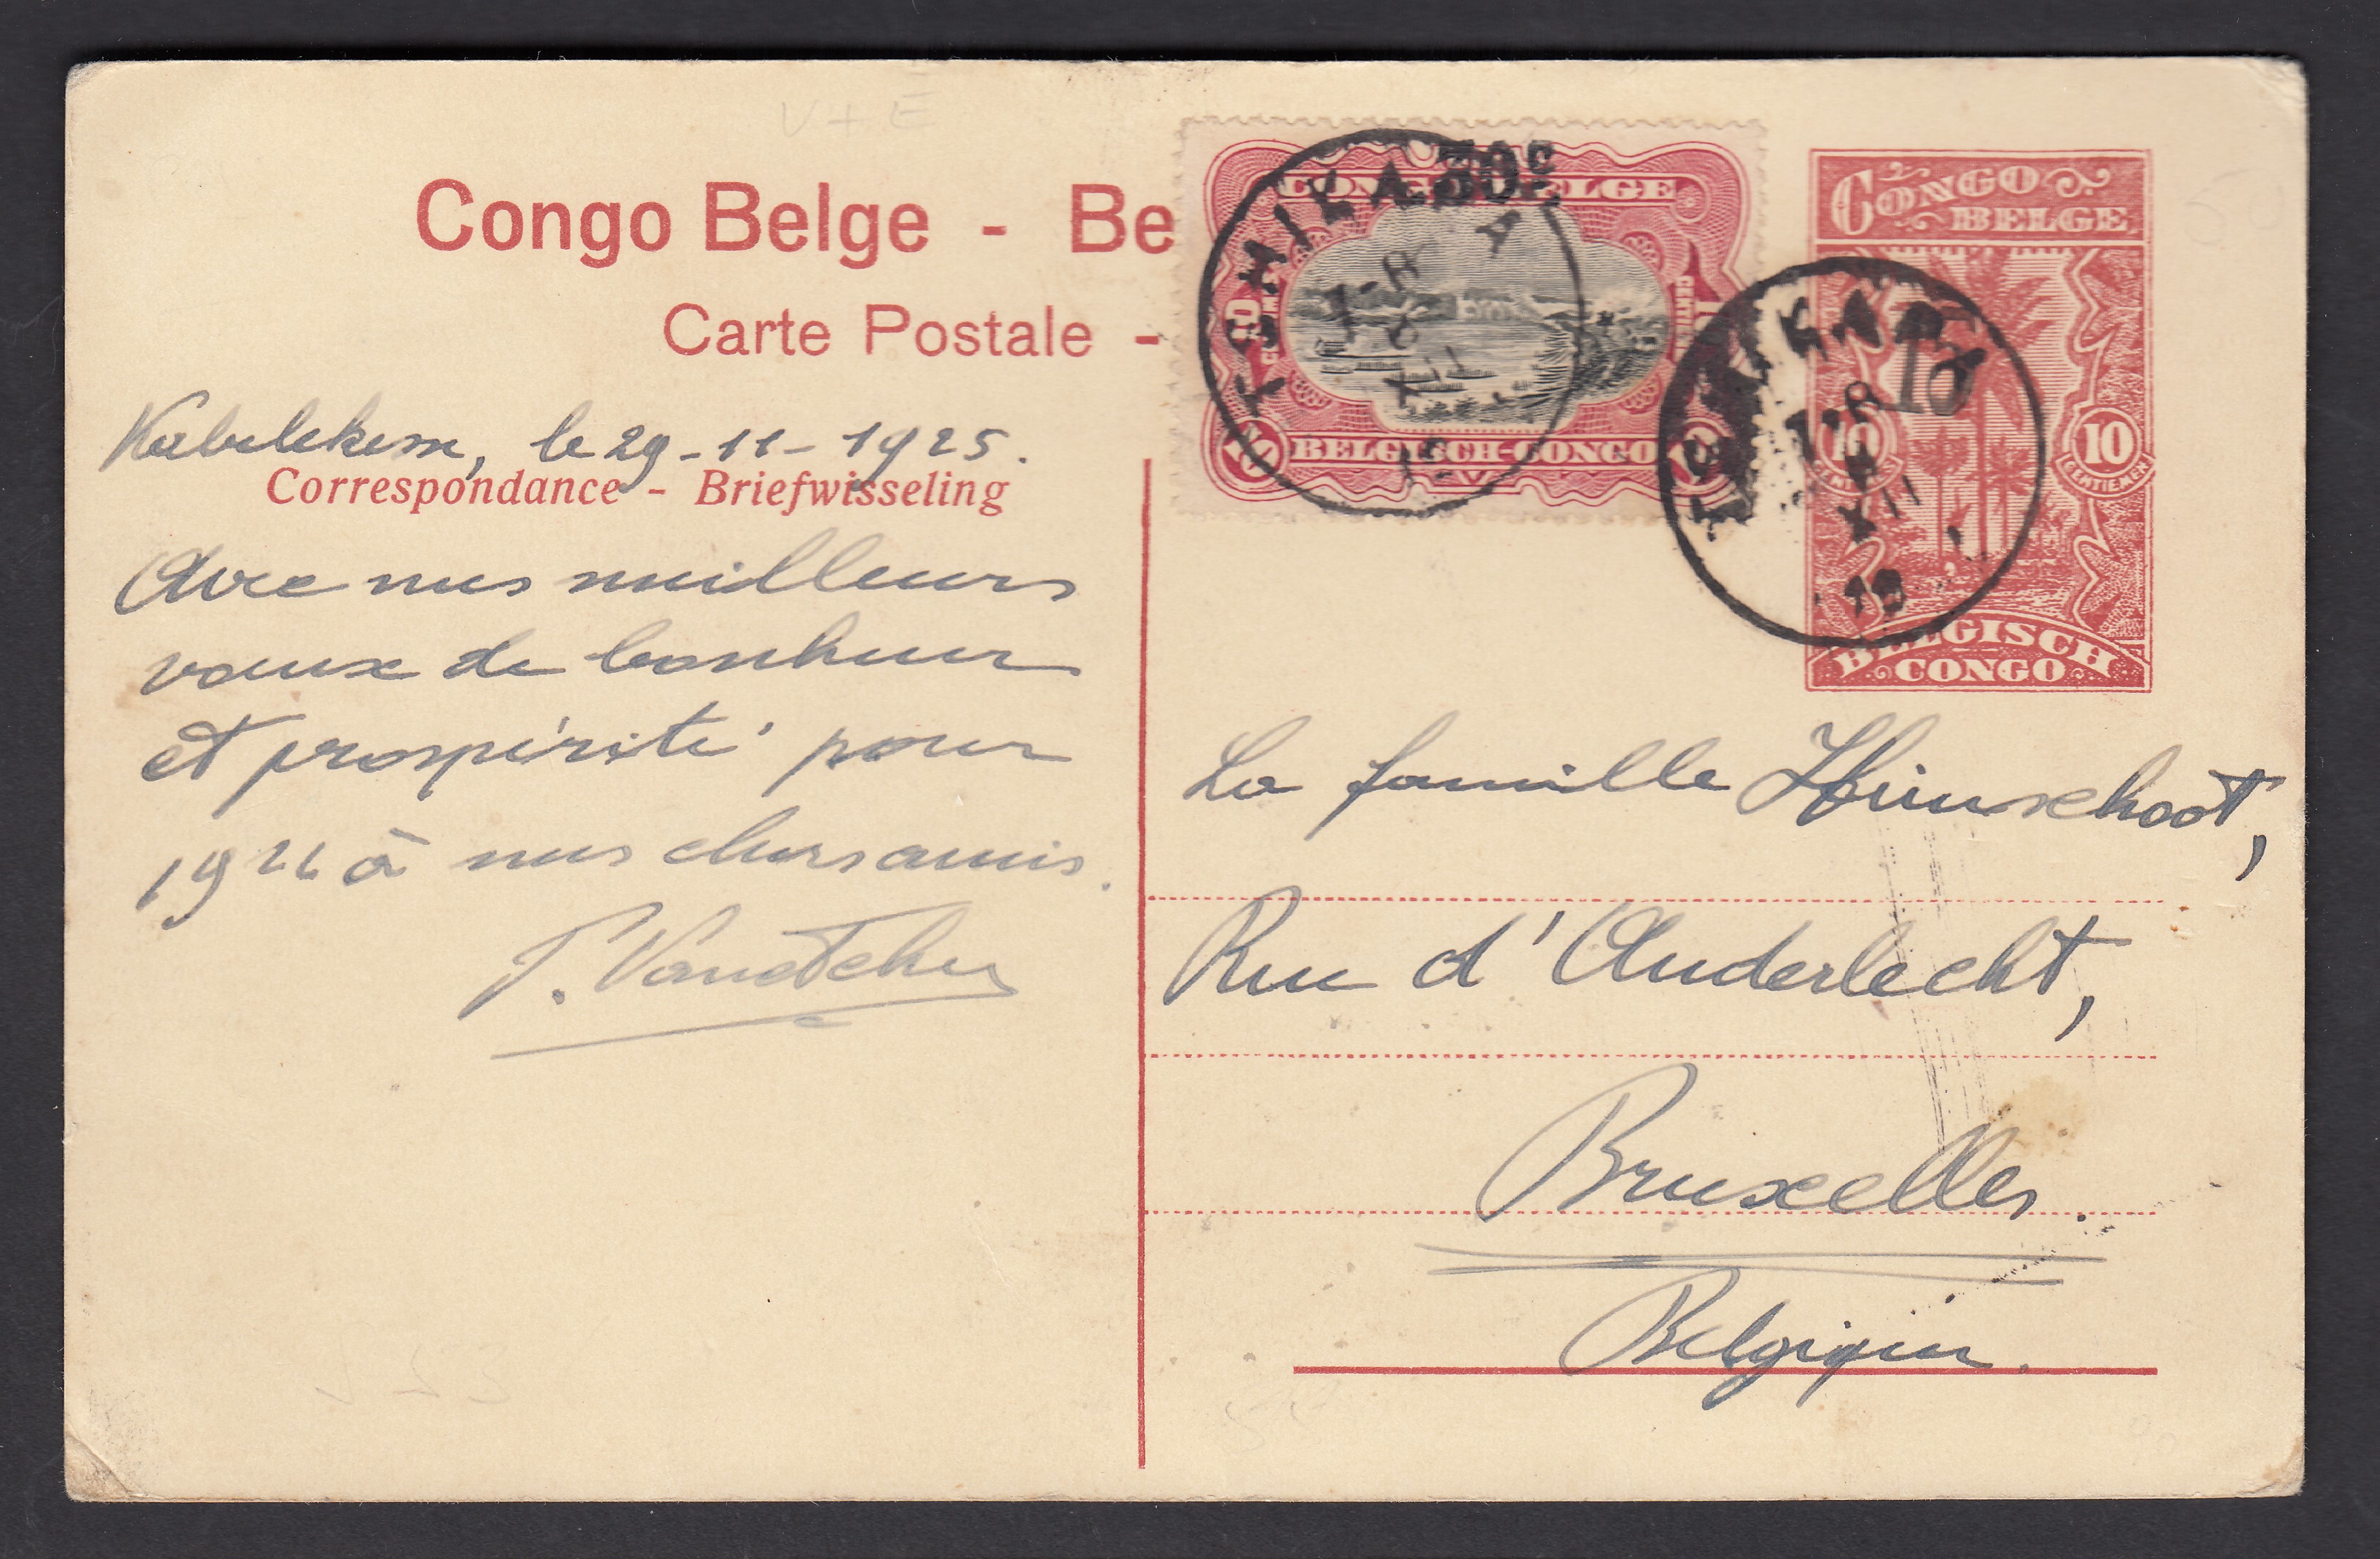 V + E
Congo Belge - Be
Carte Postale -
30c
CONGO BELGE
BELGISCH-CONGO
TSHIKAPA
7-8
XII
CONGO
BELGE
15
10
10
CENTIEMEN
BELGISCH
CONGO
TSHIKAPA
7-8
XII
19
le 29-11-1925.
Correspondance - Briefwisseling
Avec nos meilleurs
voeux de bonheur
et prospérité pour
1926 à nos chers amis.
La famille
Rue d'Anderlecht,
Bruxelles.
Belgique.